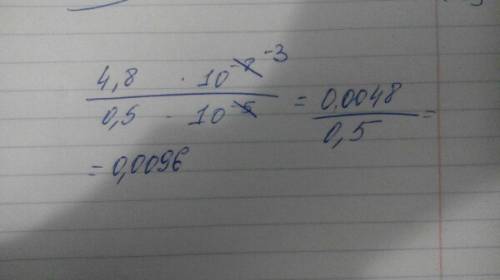 4,8 · 10^-8 -3 / 0,5 · 10^-5 = 0,0048 / 0,5 =
= 0,0096